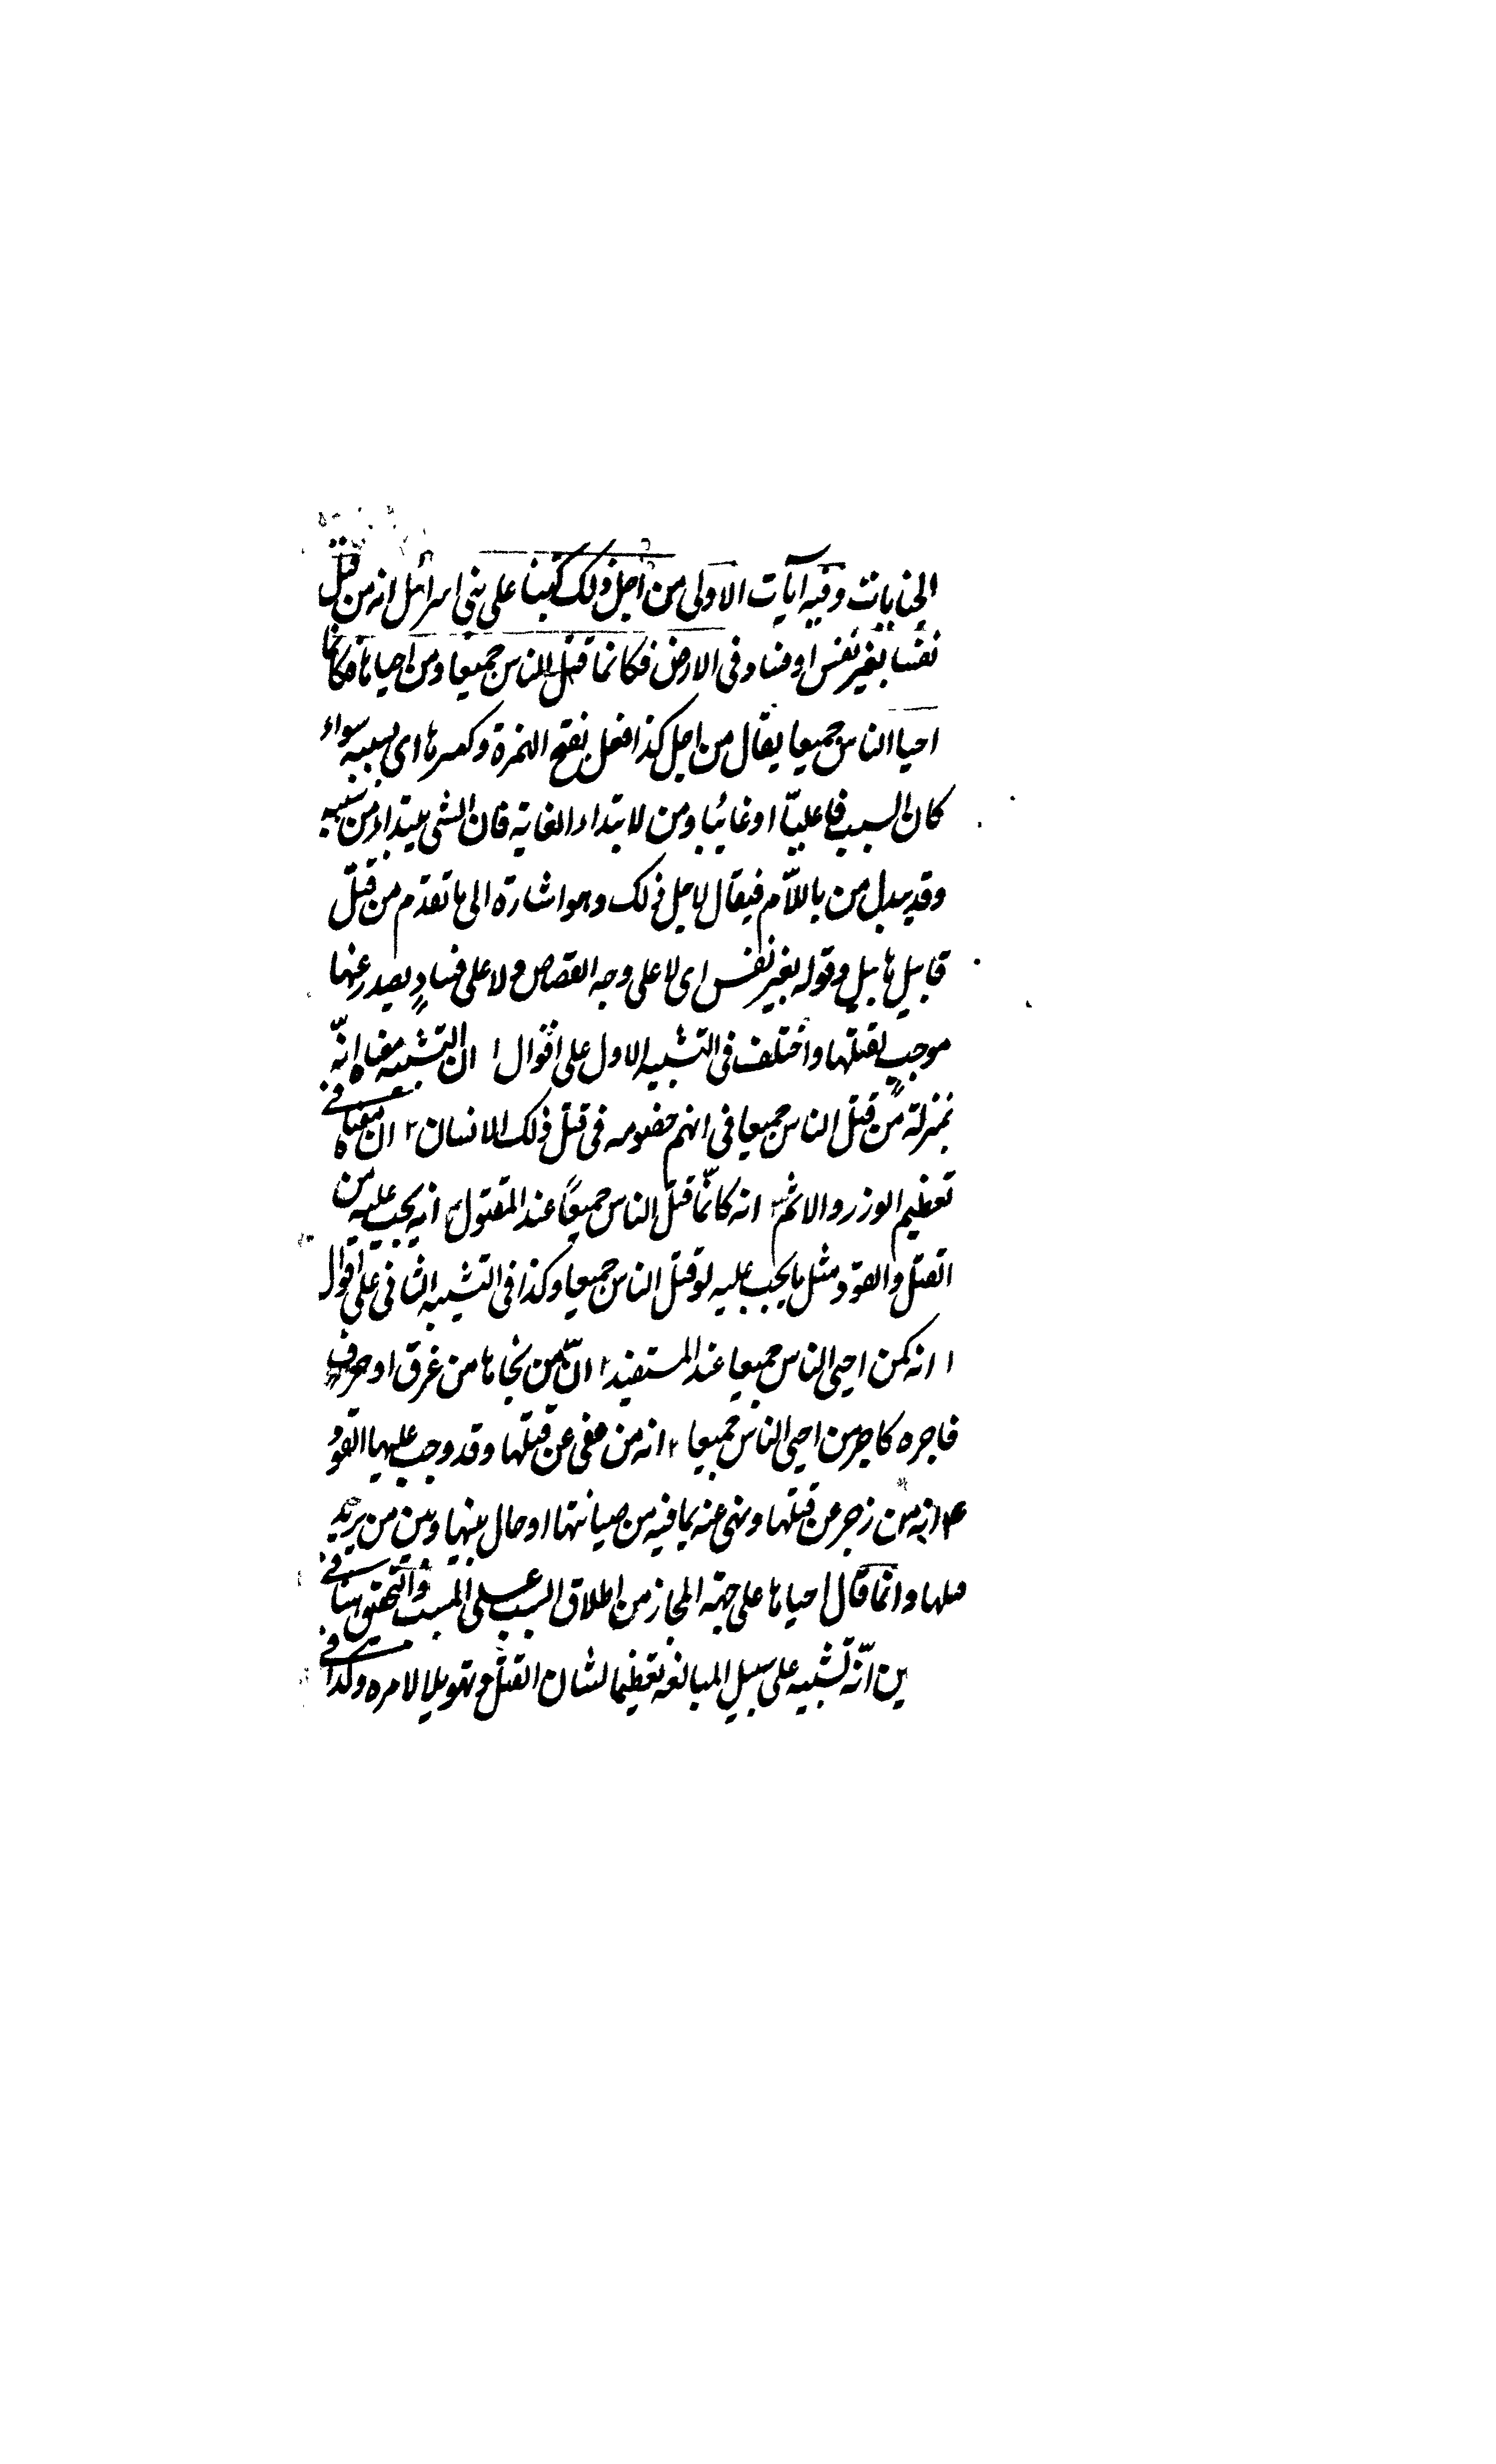 الجنايات وفيه آيات الاولى من اجل ذلك كتبنا على بنى اسرائل انه من قتل
نفسا بغير نفس او فساد فى الارض فكانما قتل الناس جميعا ومن احياها فكانما
احيا الناس جميعا يقال من اجل كذا فعل بفتح الهمزة وكسرها اى بسببه سواء
كان السبب فاعليّا او غائيا ومن لابتداء الغاية فان الشى يبتداء من سببه
وقد يبدل من باللاّم فيقال لاجل ذلك وهو اشارة الى ما تقدّم من قتل
قابيل هابيل وقوله بغير نفس اى لا على وجه القصاص ولا على فسادٍ يصدر عنها
موجبٍ لقتلها واختلف فى التشبيه الاول على اقوال ١ ان التشبيه معناه انّه
بمنزلة من قتل الناس جميعا فى انهم خصومه فى قتل ذلك الانسان ٢ ان معناه فى
تعظيم الوزر والاثم ٣ انه كانّما قتل الناس جميعًا عند المقتول ٤ انه يجب عليه من
القتل والقود مثل ما يجب عليه لو قتل الناس جميعا وكذا فى التشبيه الثانى على اقوال
١ انه كمن احيى الناس جميعا عند المستنقذ ٢ انّ من نجاها من غرق او حرق
فاجره كاجر من احيى الناس جميعا ٣ انه من عفى عن قتلها وقد وجب عليها القود
٤ انه من زجر عن قتلها ونهى عنه بما فيه من صيانتها او حال بينها وبين من يريد
قتلها وانما قال احياها على جهة المجاز من اطلاق السبب على المسبب والتحقيق هنا فى
ين انّه تشبيه على سبيل المبالغه تعظيما لشان القتل وتهويلا لامره وكذا فى